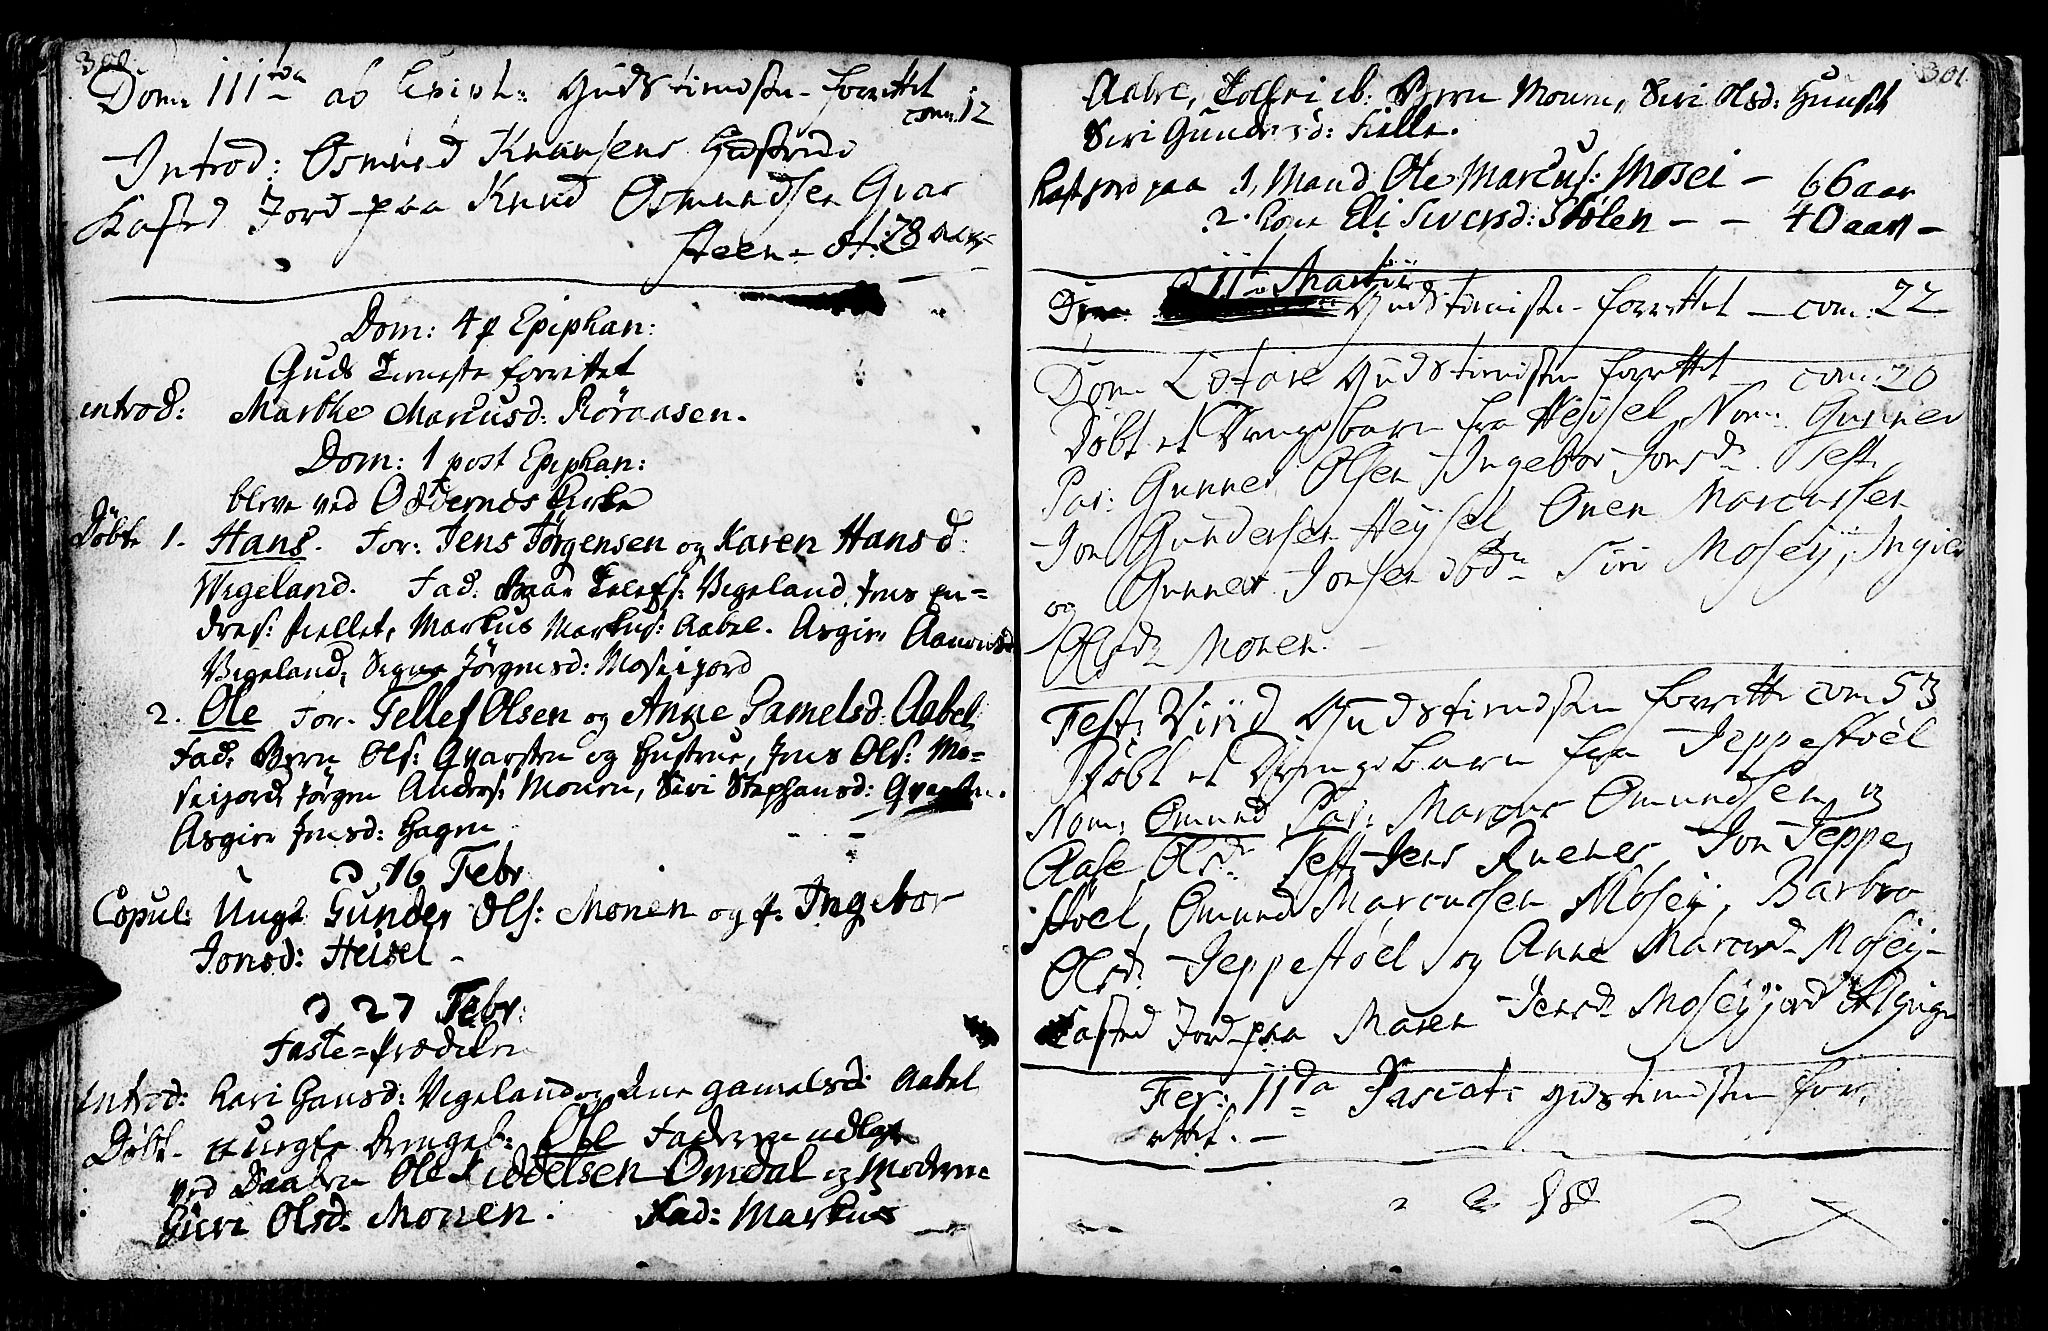 300
Dom: III tia ab Epiph: Gudstienesten forrettet
com: 12
Introd: Osmund Knudsens Hustrue
Kasted Jord paa Knud Osmundsen Qvar
steen - æt: 78 aar
Dom: 4 p Epiphan:
Guds Tieneste forrettet
introd: Marthe Marcusd: Röraasen.
Dom: 1 post Epiphan:
blev ved Oddernes Kirke
Döbt 1. Hans. For: Jens Jörgensen og Karen Hansd:
Wigeland. Fad: Tellefs: Vigeland, Jens En=
dres: Fiellet, Markus Markus: Aabel. Asgier Aanonsd
Vigeland, Signe Jörgensd: Moseijord
2. Ole For. Tellef Olsen og Anne Gamelsd: Aabel
Fad: Biørn Ols: Qvarsten og Hustrue, Jens Ols: Mo=
seijord, Jörgen Anders: Monen, Siri Stephansd: Qvarsten.
Asgier Jensd: Hagen
D 16 Febr
Copul: Ungk: Gunder Ols: Monen og p: Ingebor
Jonsd: Heisel -
D 27 Febr:
Faste=Prædiken
introd: Kari Hansd: Vigeland og Ane Gamelsd: Aabel
Döbt - et uegte Drengeb: Ole Faderen udlagt
ved Daaben Ole Siddelsen Omdal og Moderen
Guri Olsd: Monen. Fad: Markus
301
Aabel, Biørn Monen, Siri Olsd:
Siri Gundersd:
Kast Jord paa 1, Mand Ole Marcus: Mosei - 66 aar
2. Kone Eli Siversd: Stölen - - 40 aar -
Dom: II Martii Gudstienisten forrettet - com: 22
Dom Lætare Gudstienisten forrettet com: 20
Döbt et Drengebarn fra Heysel, Nom: Gunner
Par: Gunner Olsen Ingebor Jonsdr Test:
Jon Gundersen Heysel, Onen Marcussen
og Gunner Jonsen Siri Moseij, Ingier
Olsdr Monen. -
Fest: Visid Gudstienisten forrette com 53
Döbt et Drengebarn fra Jeppestöel
Nom: Omund Par: Marcus Omundsen og
Aase Olsdr Test: Jens Jon Jeppe
stöel, Omund Marcussen Mosei, Barbro
Olsdr Jeppestöel og Anne Marcusd: Mosei -
Kasted Jord paa Maren Jensdr Moseijord
Fer: IIda Pascat: Gudstienisten for,
rettet. -